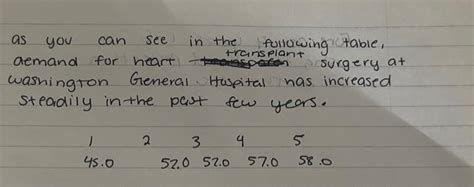 as you can see in the following table,
transplant
demand for heart surgery at
washington General Hospital has increased
steadily in the past few years.
1 2 3 4 5
45.0 52.0 52.0 57.0 58.0